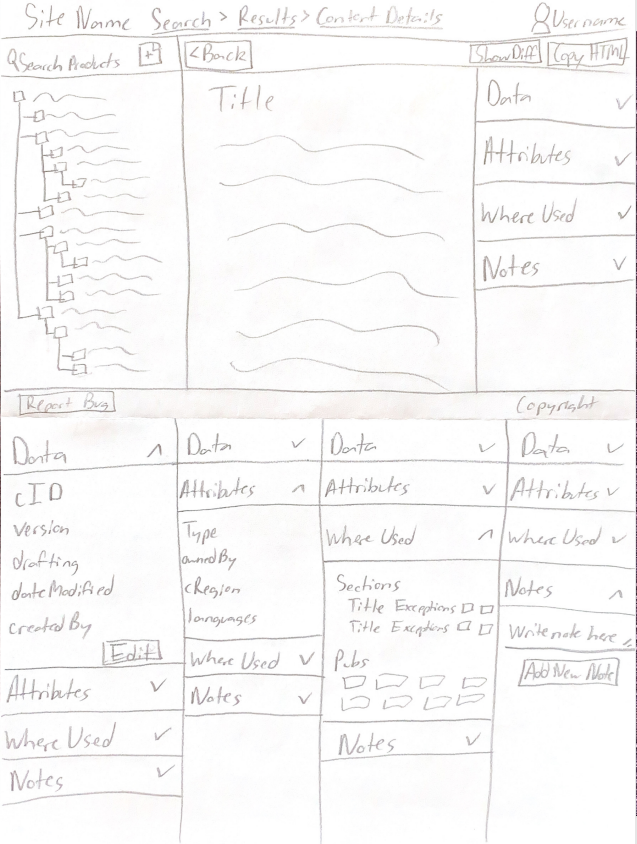 Site Name Search > Results > Content Details Username
Search Products < Back Show Diff Copy HTML
Title
Data
Attributes
Where Used
Notes
Report Bug Copyright
Data
cID
version
drafting
dateModified
createdBy
Edit
Attributes
Where Used
Notes
Data
Attributes
Type
ownedBy
cRegion
languages
Where Used
Notes
Data
Attributes
Where Used
Sections
Title Exceptions
Title Exceptions
Pubs
Notes
Data
Attributes
Where Used
Notes
Write note here
Add New Note